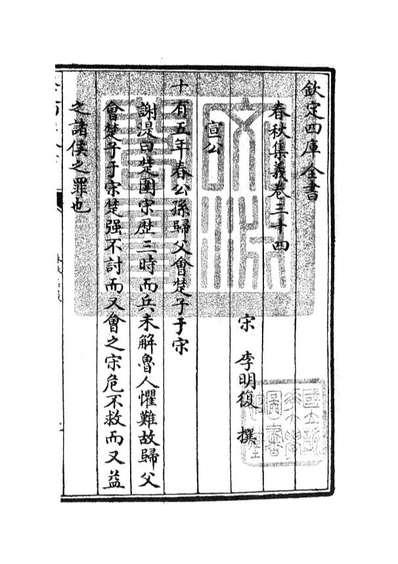 欽定四庫全書
春秋集義卷三十四
宋 李明復 撰
宣公
十有五年春公孫歸父會楚子于宋
謝湜曰楚圍宋歷三時而兵未解魯人懼難故歸父
會楚子于宋楚强不討而又會之宋危不救而又益
之諸侯之罪也